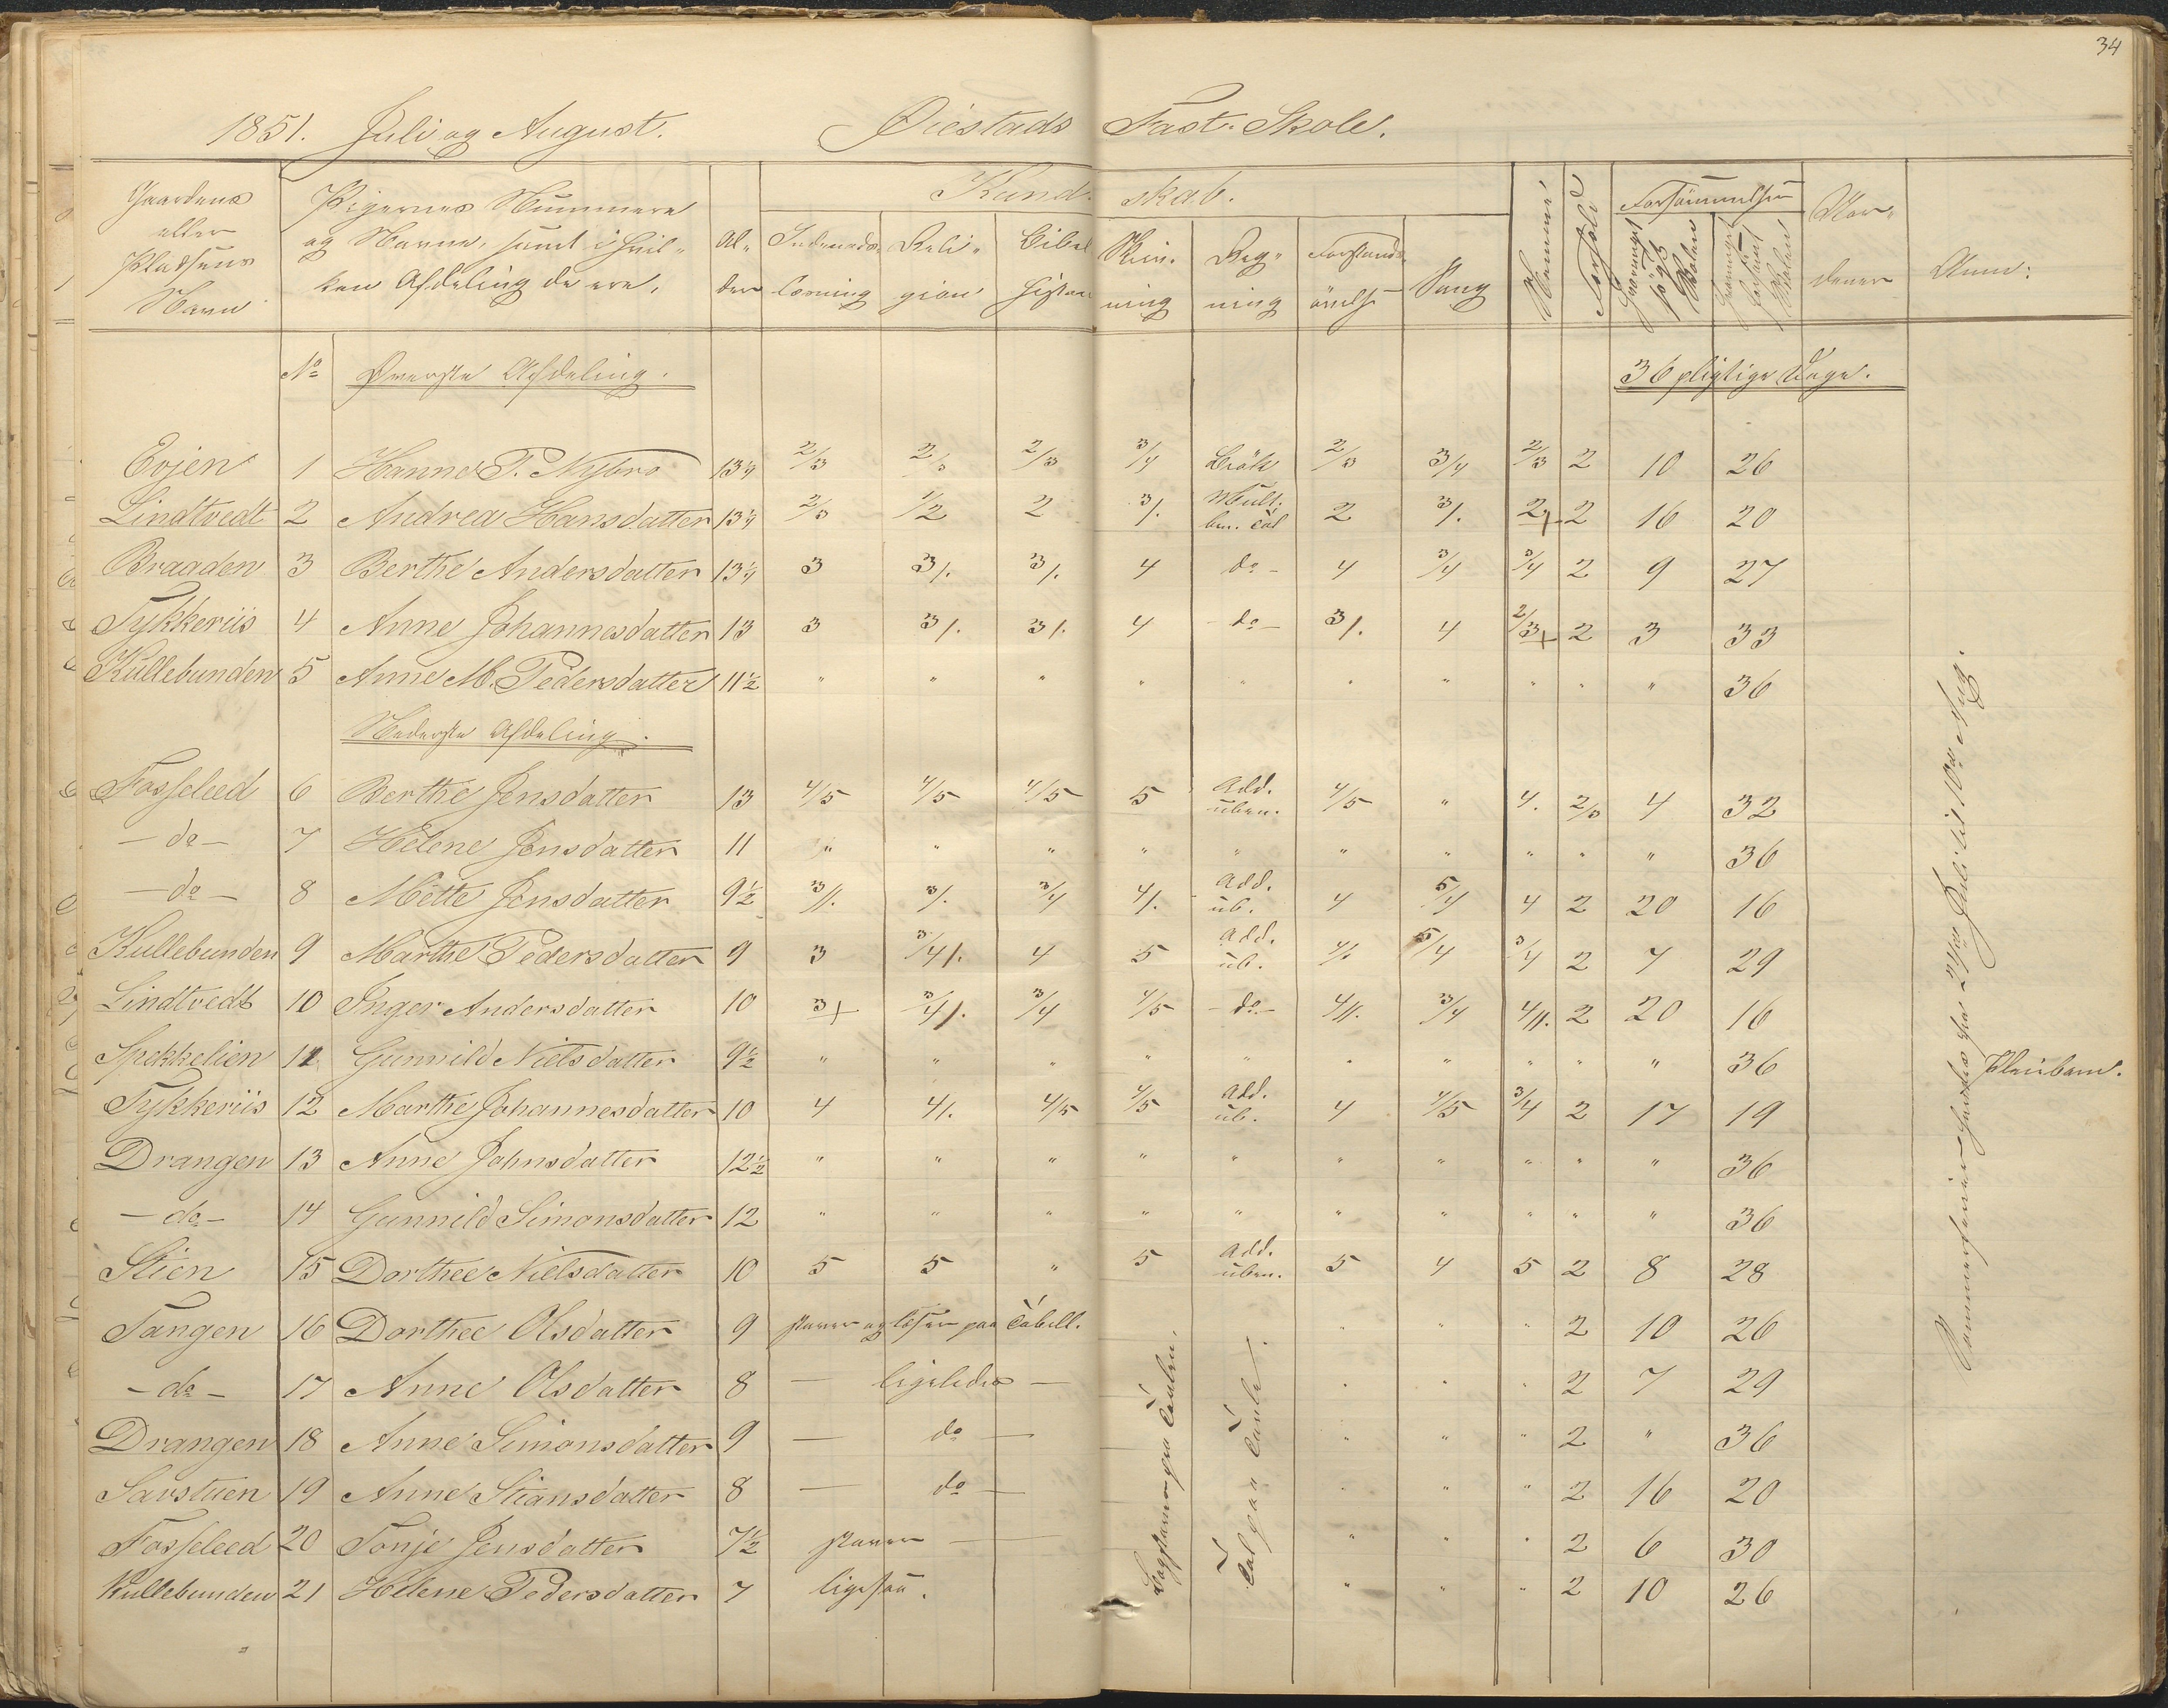 34
1851. Juli og August. Øiestads Fast-Skole.
Gaardens eller Pladsens Navn
Pigernes Nummere og Navne, samt i hvilken Afdeling de ere.
Alder
Kundskab.
Indenadslæsning
Religion
Bibelhistorie
Skrivning
Regning
Forstandsövelse
Sang
Nemme
Forhold
Forsömmelser
Hvormeget sögt Skolen
Hvormeget forsömt Skolen
Anm:
No Øverste Afdeling. 36 pligtige Dage.
Evjen 1 Hanne P. Nybro 13¼ 2/3 2/3 2/3 3/4 Brök 2/3 3/4 2/3 2 10 26
Lindtvedt 2 Andrea Hansdatter 13¼ 2/3 1/2 2 3/. Mult. ben. Tal 2 3/. 2+ 2 16 20
Braaden 3 Berthe Andersdatter 13¼ 3 3/. 3/. 4 do- 4 3/4 3/4 2 9 27
Tykkeriis 4 Anne Johannesdatter 13 3 3/. 3/. 4 -do- 3/. 4 2/3+ 2 3 33
Kullebunden 5 Anne M. Pedersdatter 11½ " " " " " " " " " " 36
Nederste Afdeling.
Fosseleed 6 Berthe Jensdatter 13 4/5 4/5 4/5 5 Add. uben. 4/5 " 4. 2/3 4 32
-do- 7 Helene Jensdatter 11 " " " " " " " " " " 36
-do- 8 Mette Jensdatter 9½ 3//. 3/. 3/4 4/. Add. ub. 4 5/4 4 2 20 16
Kullebunden 9 Marthe Pedersdatter 9 3 3/4/. 4 5 Add. ub. 4/. 5/4 3/4 2 7 29
Lindtvedt 10 Inger Andersdatter 10 3+ 3/4/. 3/4 4/5 -do- 4//. 3/4 4//. 2 20 16
Spekkelien 11 Gunnild Nielsdatter 9½ " " " " " " " " " " 36 Pleiebarn.
Tykkeriis 12 Marthe Johannesdatter 10 4 4/. 4/5 4/5 Add. ub. 4 4/5 3/4 2 17 19
Drangen 13 Anne Johnsdatter 12½ " " " " " " " " " " 36
-do- 14 Gunnild Simonsdatter 12 " " " " " " " " " " 36
Stien 15 Dorthee Nielsdatter 10 5 5 " 5 Add. uben. 5 4 5 2 8 28
Tangen 16 Dorthee Olsdatter 9 staver og læser paa Tabell. " " " 2 10 26
-do- 17 Anne Olsdatter 8 — ligeledes — " " " 2 7 29
Drangen 18 Anne Simonsdatter 9 — do — " " " 2 " 36
Savstuen 19 Anne Stiansdatter 8 — do — " " " 2 16 20
Fosseleed 20 Tonje Jensdatter 7½ staver — " " " 2 6 30
Kullebunden 21 Helene Pedersdatter 7 ligesaa. " " " 2 10 26
Bogstaver paa Tavlen.
Tal paa Tavle.
Sommerferier holdes fra 21de Juli til 10de Aug.